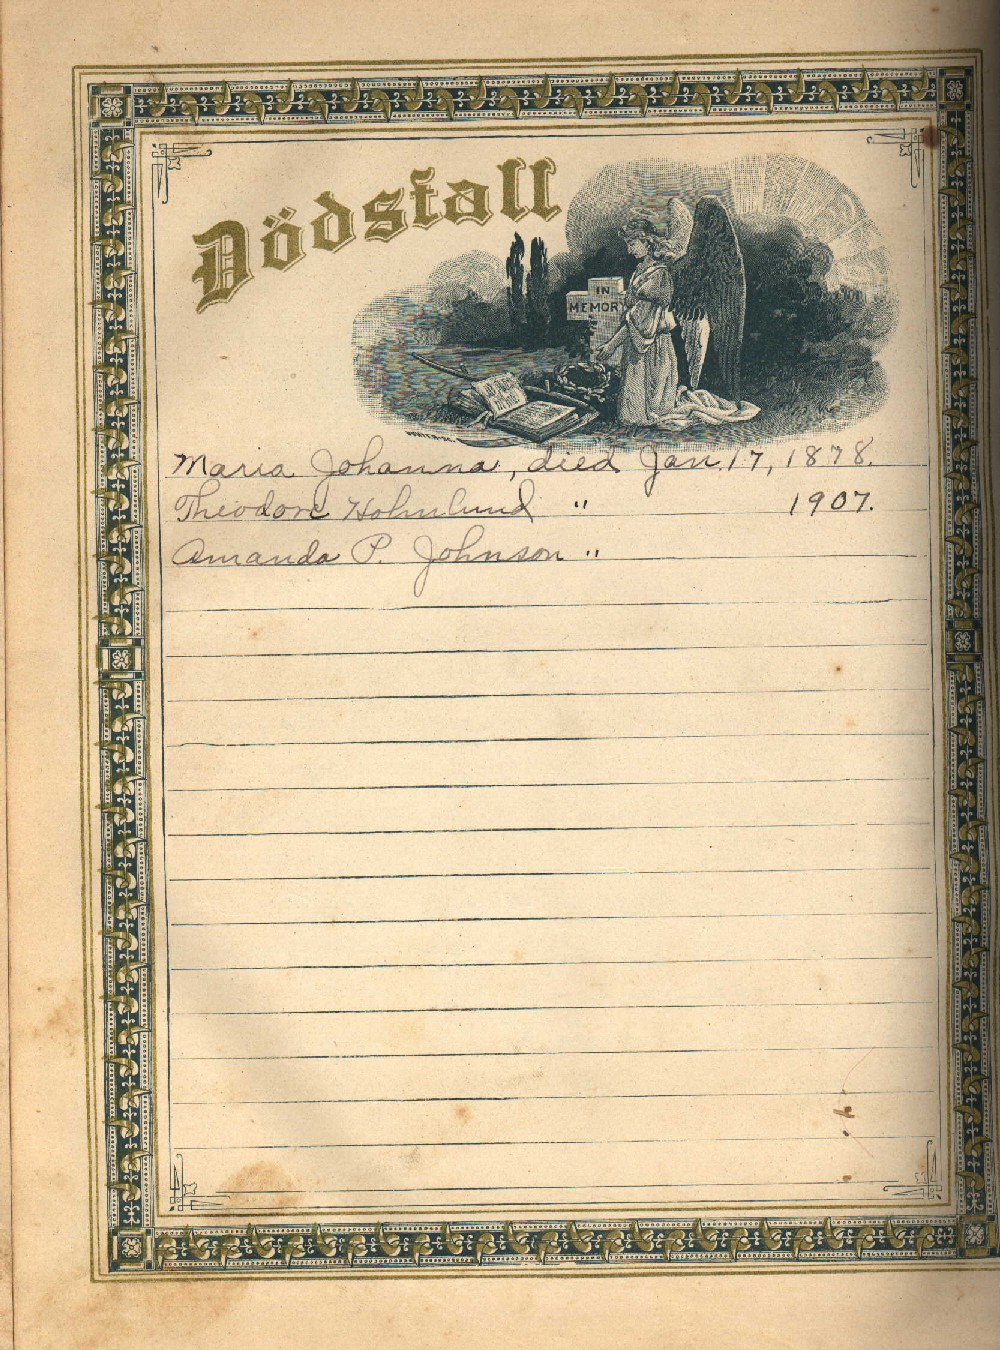 Dödsfall
IN
MEMORY
Maria Johanna, died Jan. 17, 1878.
Theodore Holmlund " 1907.
Amanda P. Johnson "